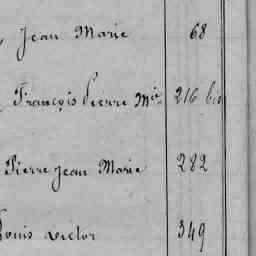 Jean Marie 68
François Pierre Mie 216 bis
Pierre Jean Marie 282
Louis Victor 349